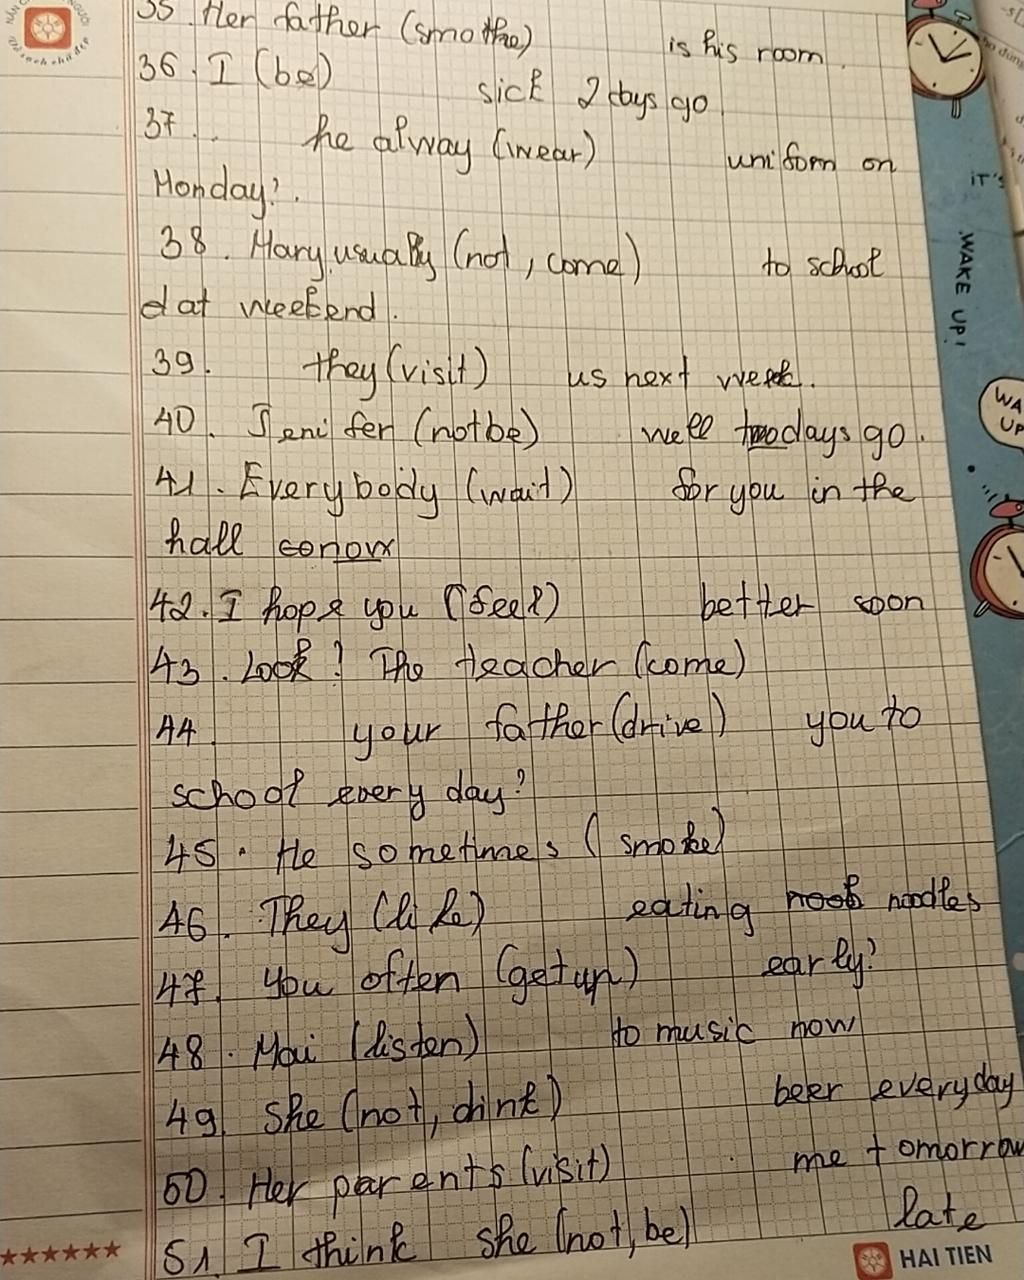 35. Her father (smothe) is his room.
36. I (be) sick 2 days go
37. he alway (wear) uniform on
Monday?.
38. Mary usually (not, come) to school
dat weekend.
39. they (visit) us next week.
40. Jenifer (notbe) well twodays go.
41. Everybody (wait) for you in the
hall now
42. I hope you (feel) better soon
43. Look! The teacher (come)
44 your father (drive) you to
school every day?
45. He sometimes (smoke)
46. They (like) eating noodles
47. you often (getup) early?
48. Mai (listen) to music now
49. She (not, dink) beer everyday
50. Her parents (visit) me tomorrow
51. I think she (not, be) late
IT'S
WAKE UP!
WA
UP
HAI TIEN